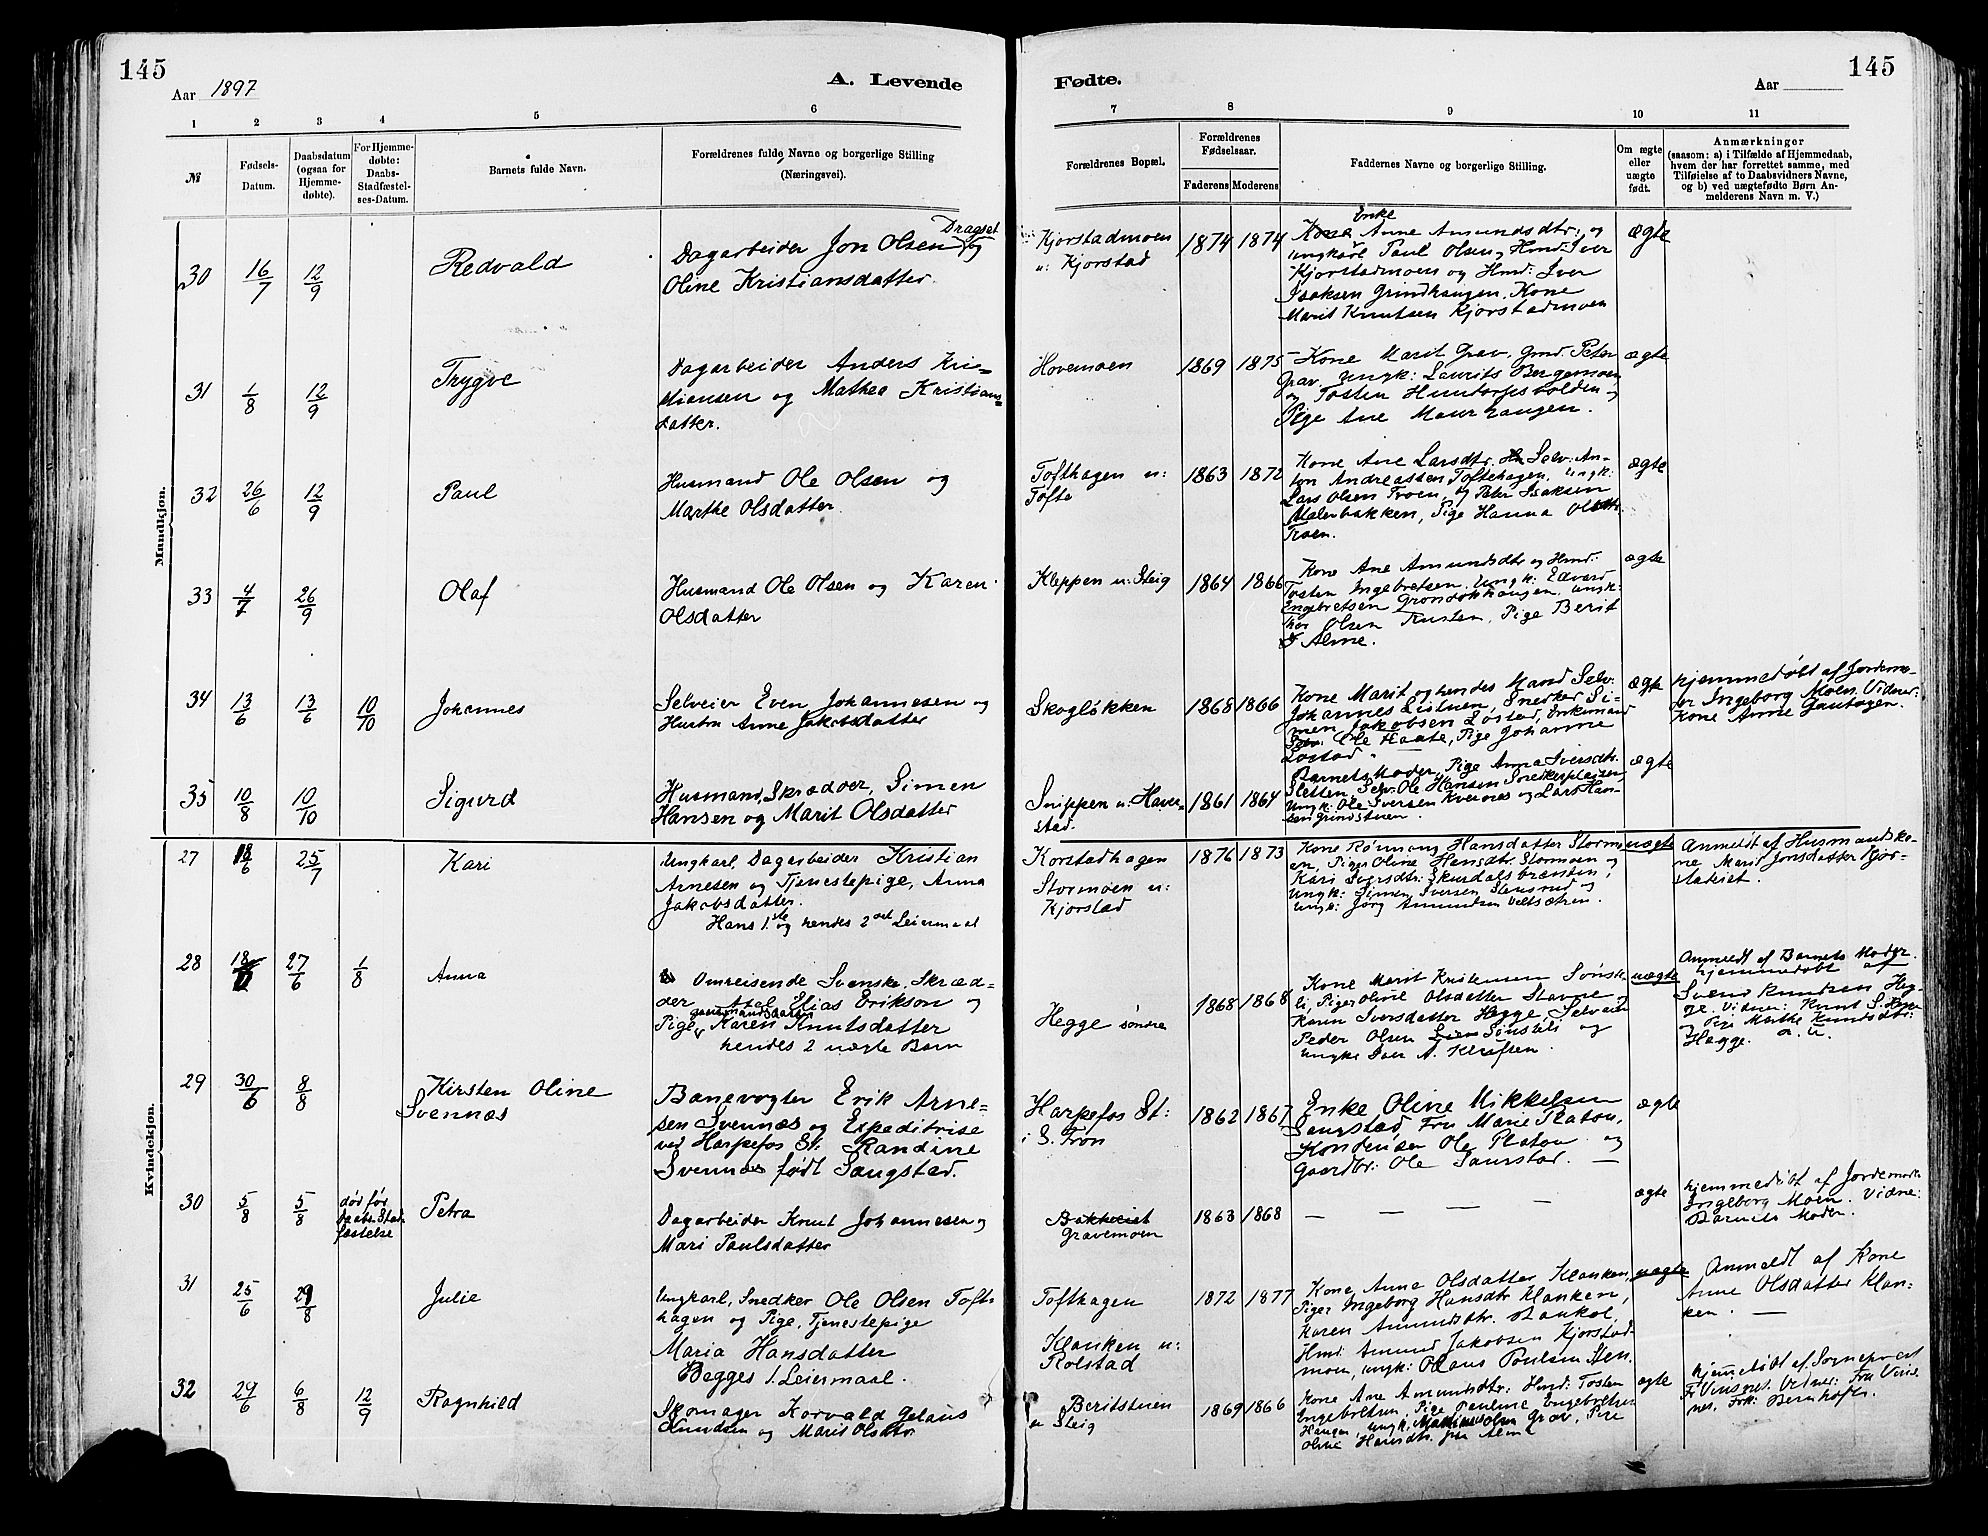 145
Aar 1897
A. Levende
Fødte.
Aar
145
1
2
3
4
5
6
7
8
9
10
11
№
Fødsels-
Datum.
Daabsdatum
(ogsaa for
Hjemme-
døbte).
For Hjemme-
døbte:
Daabs-
Stadfæstel-
ses-Datum.
Barnets fulde Navn.
Forældrenes fulde Navne og borgerlige Stilling
(Næringsvei).
Forældrenes Bopæl.
Forældrenes
Fødselsaar.
Faderens Moderens
Faddernes Navne og borgerlige Stilling.
Om ægte
eller
uægte
født.
Anmærkninger
(saasom: a) i Tilfælde af Hjemmedaab,
hvem der har forrettet samme, med
Tilføielse af to Daabsvidners Navne,
og b) ved uægtefødte Børn An-
melderens Navn m. V.)
Mandkjøn.
30 16/7 12/9
Redvald
Dragset
Dagarbeider Jon Olsen og
Oline Kristiansdatter.
Kjorstadmoen
u: Kjorstad
1874 1874
Enke
Kone Anne Amundsdtr: og
ungkarl Paul Olsen, Hmd: Iver
Kjorstadmoen og Hmd: Iver
Isaksen Grindhaugen, Kone
Marit Knutsen Kjorstadmoen
ægte
31 1/8 12/9
Trygve
Dagarbeider Anders Kri-
stiansen og Mathea Kristians-
datter.
Hovemoen
1869 1875
Kone Marit Grav, Gmd. Peter
Grav. Ungk: Laurits Bergemoen
og Tosten Hundorpsbolden og
Pige Ane Maurhaugen.
ægte
32 26/6 12/9
Paul
Husmand Ole Olsen og
Marthe Olsdatter.
Tofthagen u:
Tofte
1863 1872
Kone Ane Larsdtr. Selv: An-
ton Andreassen Toftehagen, Ungk:
Lars Olsen Troen, og Peter Isaksen
Mælerbakken, Pige Hanna Olsdtr.
Troen.
ægte
33 4/7 26/9
Olaf
Husmand Ole Olsen og Karen
Olsdatter
Kleppen u: Steig
1864 1866
Kone Ane Amundsdtr og Hmd:
Tosten Ingebretsen, Ungk: Edvard
Engebretsen Grondokhaugen, Ungk:
Olsen Rusten, Pige Berit
Alme.
ægte
34 13/6 13/6 10/10
Johannes
Selveier Even Johannesen og
Hustru Anne Jakobsdatter
Skogløkken
1868 1866
Kone Marit og hendes Mand Selv:
Johannes Listuen, Snedker Si-
men Jakobsen Løstad, Enkemand
Selv: Ole Haate, Pige Johanne
Løstad.
ægte
hjemmedøbt af Jordemo-
der Ingeborg Moen. Vidner:
Kone Anne Gautagen.
35 10/8 10/10
Sigurd
Husmand, Skrædder, Simen
Hansen og Marit Olsdatter
Snippen u: Haver-
stad.
1861 1864
Barnets Moder, Pige Anna Iversdtr.
Sletten, Selv: Ole Hansen Snedkerpladsen
Ungk: Ole Iversen Kvernes og Lars Han-
sen Grindstuen.
ægte
Kvindekjøn.
27 18/6 25/7
Kari
Ungkarl, Dagarbeider Kristian
Arnesen og Tjenestepige, Anna
Jakobsdatter.
Hans 1ste og hendes 2det Leiermaal
Korstadhagen
Stormoen u:
Kjorstad
1876 1873
Kone Rønnaug Hansdatter Stormo-
en, Piger Oline Hansdtr. Stormoen og
Kari Iversdtr: Skurdalsbrænden,
Ungk: Simen Iversen Stensrud og
Ungk: Jørg Amundsen Veltsætren.
uægte
Anmeldt af Husmandsko-
ne Marit Jonsdatter Kjor-
stadeiet.
28 18/ 27/6 1/8
Anna
Omreisende Svenske, Skræd-
der Axel Elias Erikson og
Gaardmandsdatter
Pige, Karen Knutsdatter
hendes 2 uægte Barn
Hegge søndre
1868 1868
Kone Marit Kristensen Sønste-
li, Piger Oline Olsdatter Stavne
Karen Iversdatter Hegge, Selveier
Peder Olsen Sønsteli og
Ungk: Iver A. Kleiften.
uægte
Anmeldt af Barnets Moder.
hjemmedøbt af
Svend Knudsen Heg-
ge. Vidner: Knut S. Hegge
og Pige Marthe Knudsdtr:
Hegge.
29 30/6 8/8
Kirsten Oline
Svennæs
Banevogter Erik Arne-
sen Svennæs og Expeditrise
ved Harpefos St. Randine
Svennæs født Sangstad.
Harpefos St:
i S. Fron
1862 1867
Enke Oline Mikkelsen
Sangstad, Fru Marie Platou,
Konduktør Ole Platou og
Gaardbr: Ole Saustad. —
ægte
30 5/8 5/8
død før
Daabs Stad-
fæstelse
Petra
Dagarbeider Knut Johannesen og
Mari Paulsdatter
Bakkeeiet
Gravemoen
1863 1868
— — — —
ægte
hjemmedøbt af Jordemoder
Ingeborg Moen. Vidne:
Barnets Moder.
31 25/6 29/8
Julie
Ungkarl, Snedker Ole Olsen Toft-
hagen og Pige, Tjenestepige
Maria Hansdatter
Begges 1. Leiermaal.
Tofthagen
Klanken u:
Rolstad
1872 1877
Kone, Anna Olsdatter Klanken,
Piger Ingeborg Hansdtr Klanken,
Karen Amundsdtr. Baukol,
Hmd: Amund Jakobsen Kjorstad-
moen, Ungk: Olaus Poulsen Sten.
uægte
Anmeldt af Kone
Anne Olsdatter Klan-
ken. —
32 29/6 6/8 12/9
Ragnhild
Skomager Korvald Gelaus
Knudsen og Marit Olsdtr
Beritstuen
u Steig
1869 1866
Kone Ane Amundsdtr: Hmd: Tosten
Engebretsen, Pige Pauline Engebretsen
Haugen, Ungk. Olsen Grav, Pige
Oline Hansdtr. fra Alme
ægte
hjemmedøbt af Sogneprest
Fr Vinsnes. Vidner: Fru Vins-
nes, Frk: Bernhoft.